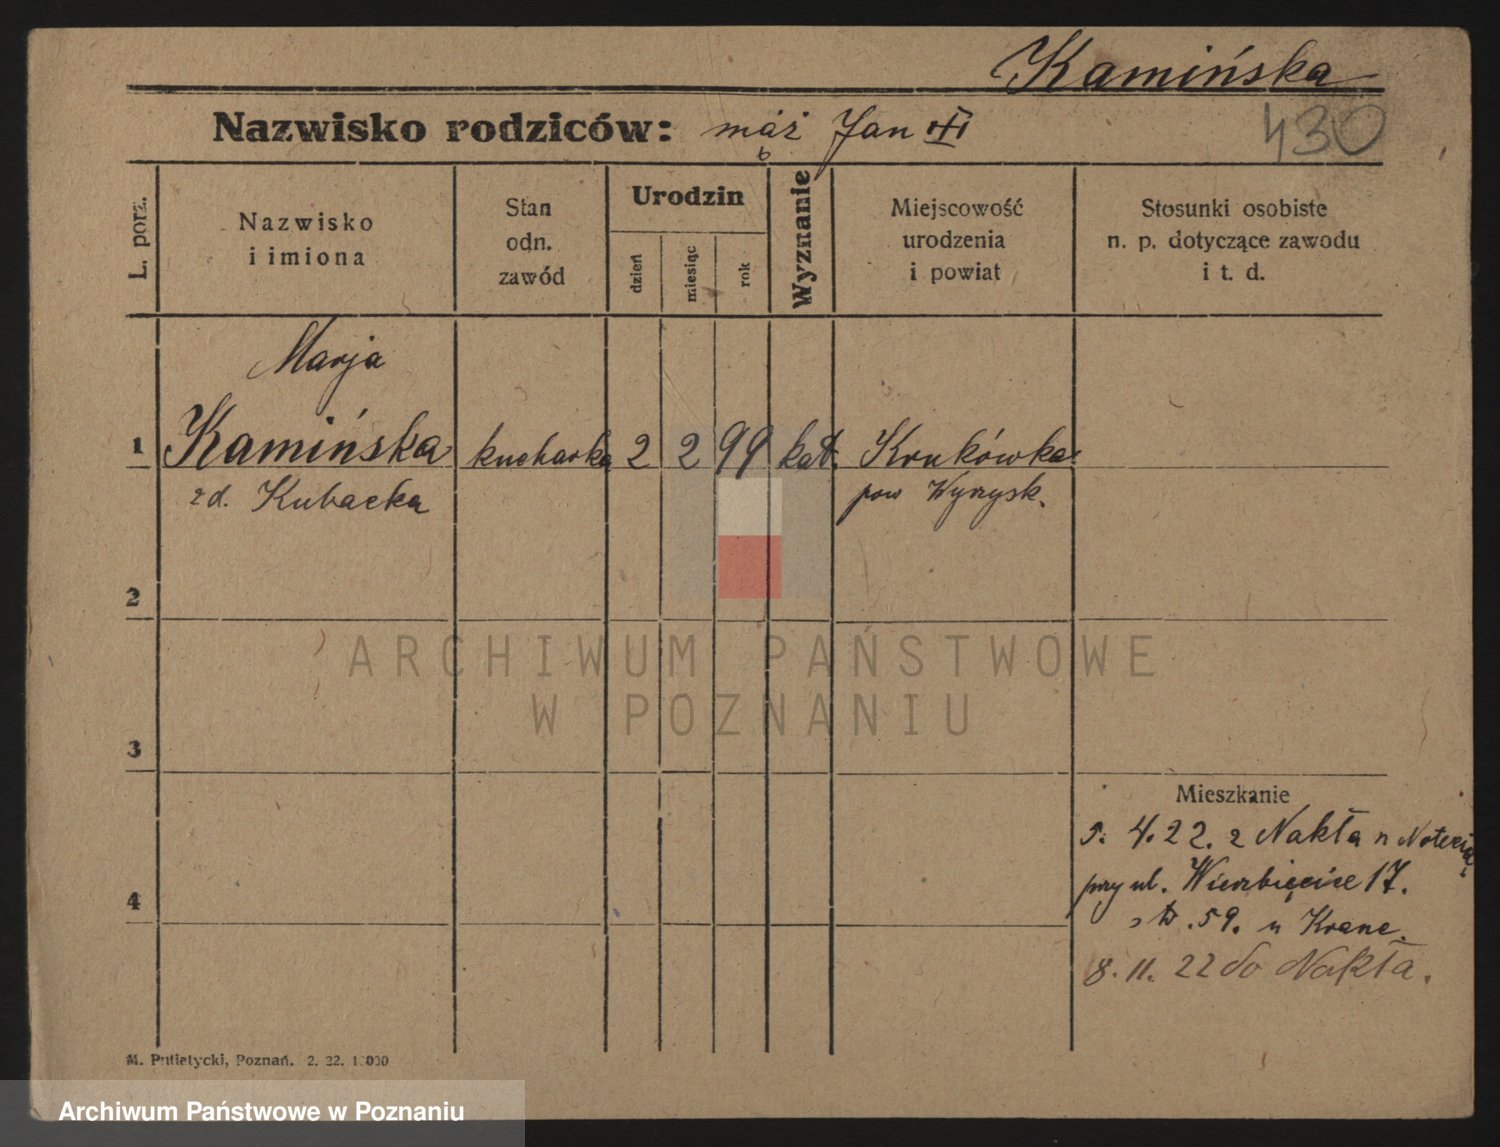 Kamińska
430
Nazwisko rodziców: mąż Jan
L. porz.
Nazwisko i imiona
Stan odn. zawód
Urodzin
dzień
miesiąc
rok
Wyznanie
Miejscowość urodzenia i powiat
Stosunki osobiste n. p. dotyczące zawodu i t. d.
Marja
1 Kamińska kucharka 2 2 99 kat. Krukówka
zd. Kubacka pow Wyrzysk.
2
ARCHIWUM PAŃSTWOWE
W POZNANIU
3
Mieszkanie
5. 4. 22. z Nakła n Notecią
przy ul. Wierzbięcice 17.
59. u Krane.
4
8. 11. 22 do Nakła.
M. Putiatycki, Poznań. 2. 22.
Archiwum Państwowe w Poznaniu